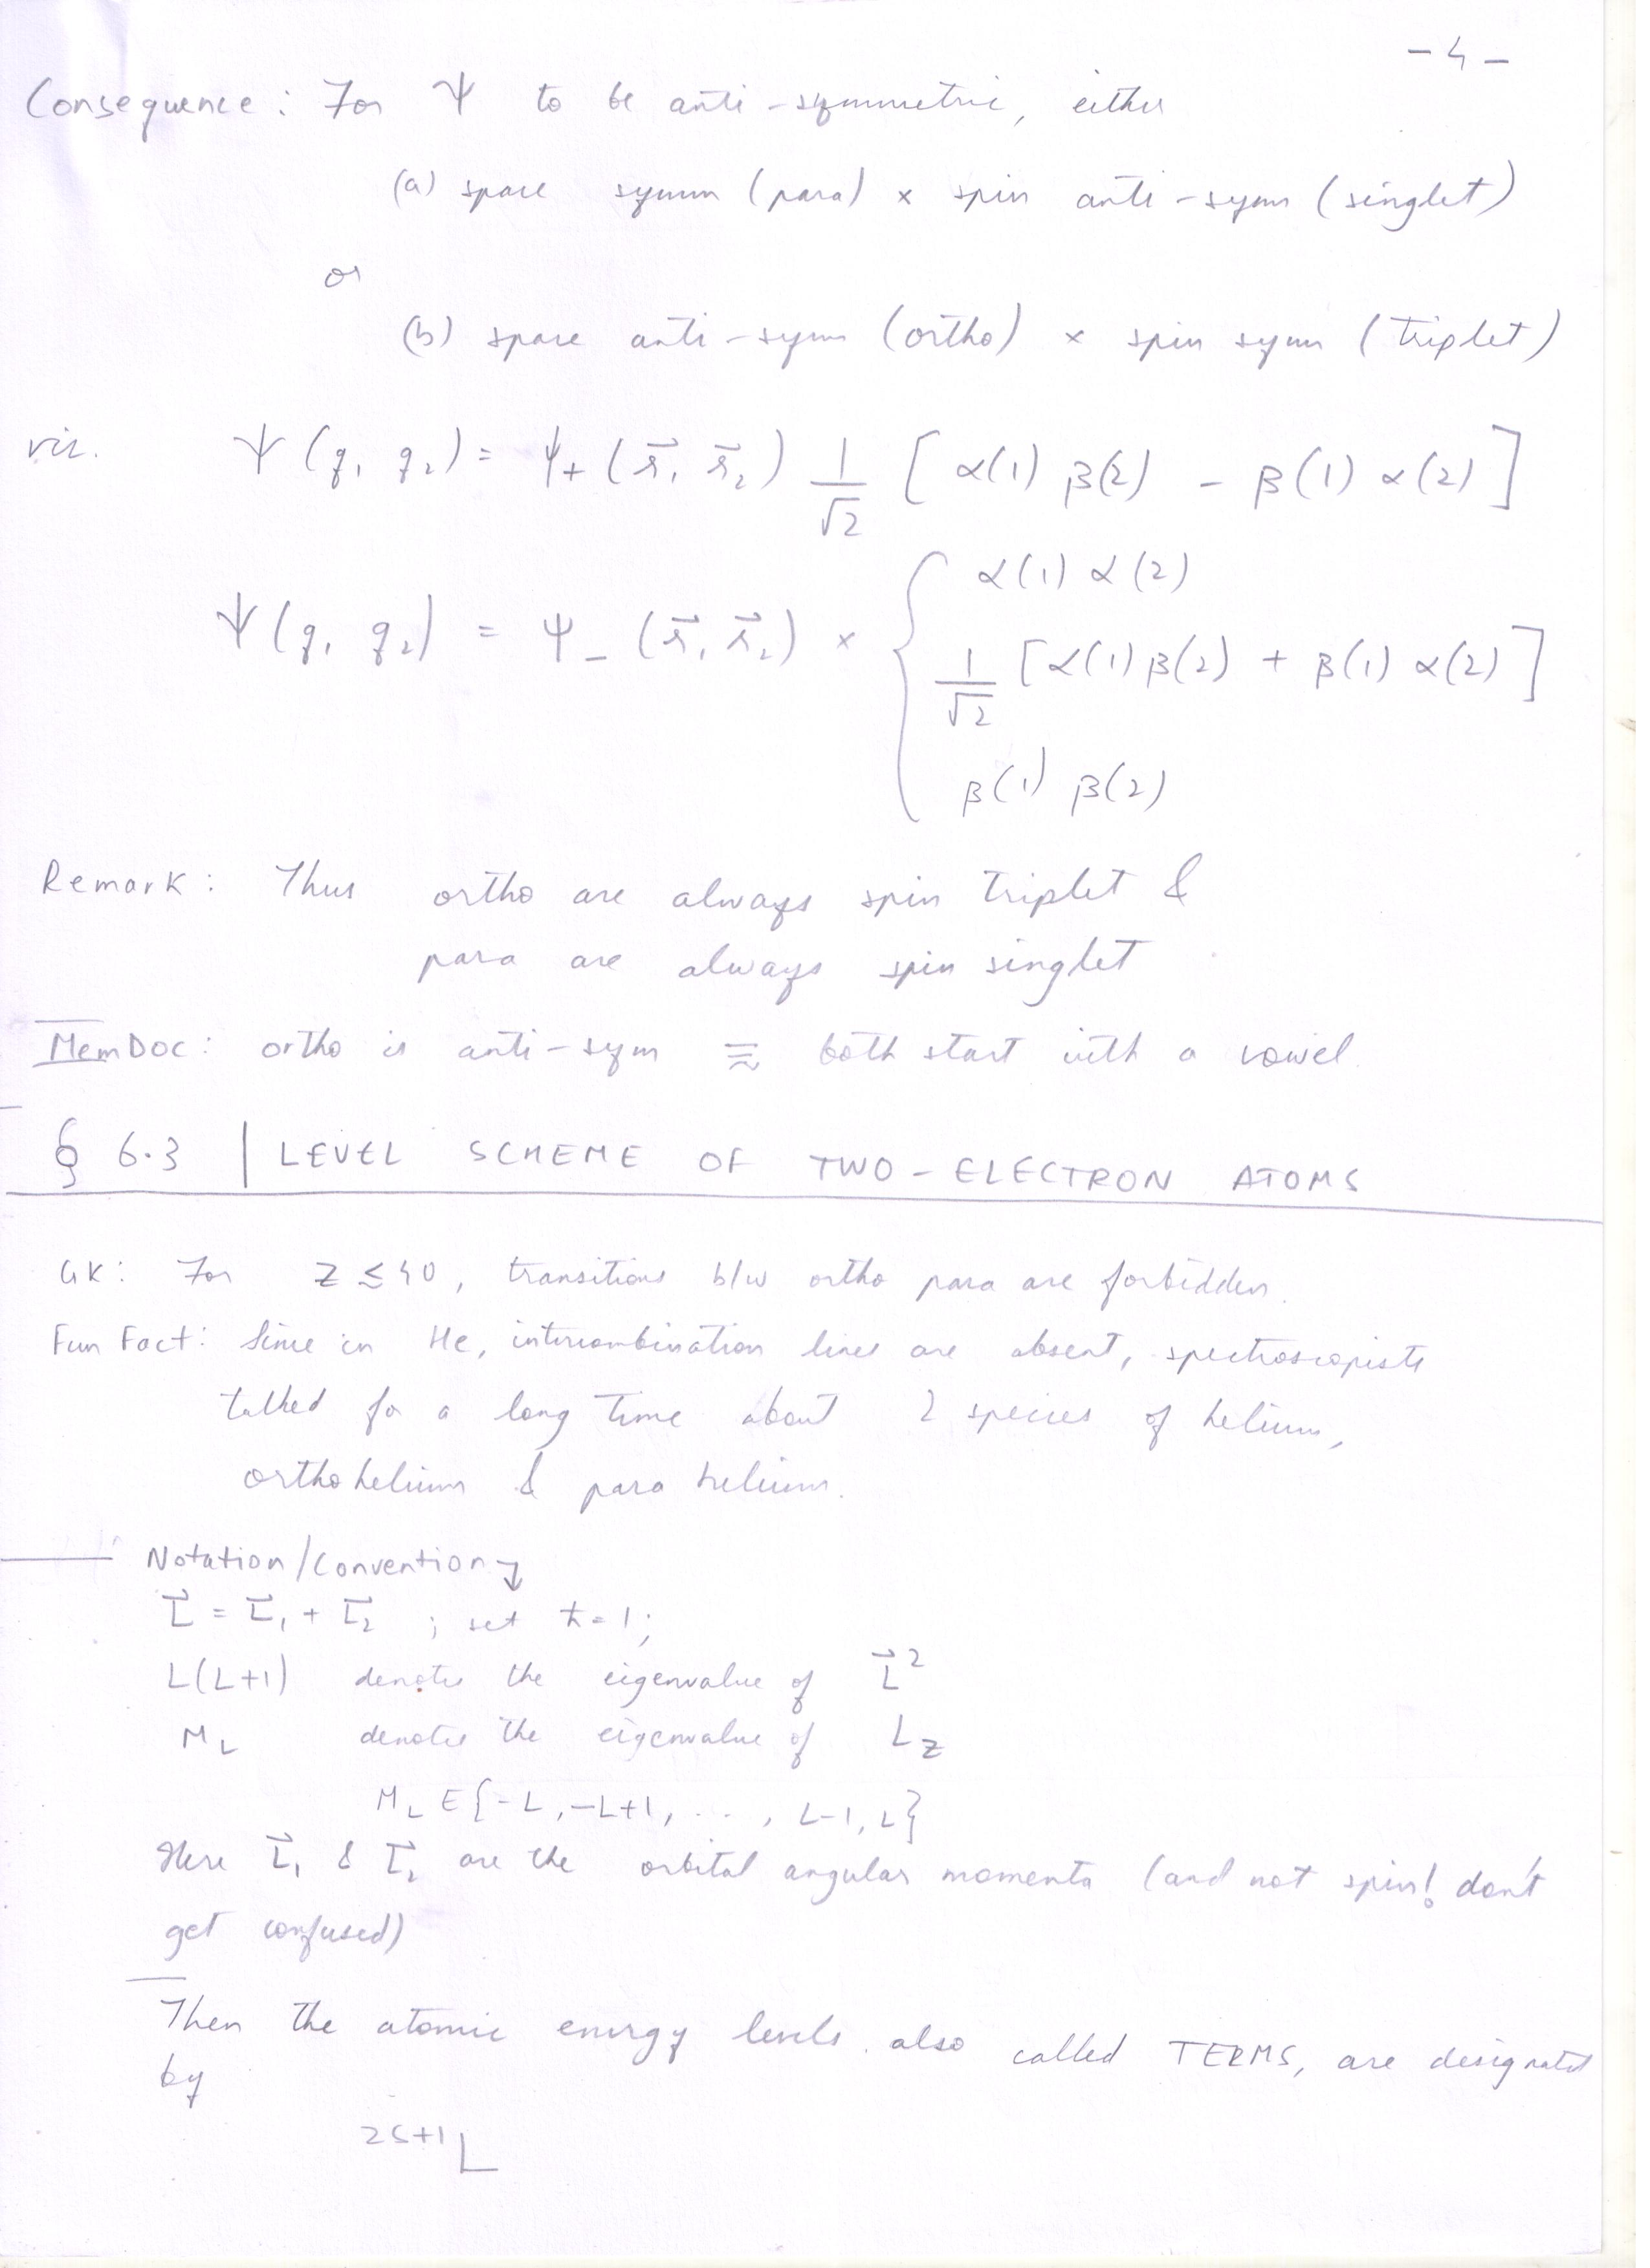 - 4 -
Consequence : For Ψ to be anti-symmetric, either
(a) space symm (para) × spin anti-symm (singlet)
or
(b) space anti-symm (ortho) × spin symm (triplet)
viz. Ψ(q₁ q₂) = ψ₊(r⃗₁ r⃗₂) 1/√2 [α(1) β(2) - β(1) α(2)]
Ψ(q₁ q₂) = ψ₋(r⃗₁ r⃗₂) × { α(1) α(2)
1/√2 [α(1) β(2) + β(1) α(2)]
β(1) β(2)
Remark : Thus ortho are always spin triplet &
para are always spin singlet
MemDoc : ortho is anti-sym ≈ both start with a vowel.
§ 6.3 | LEVEL SCHEME OF TWO-ELECTRON ATOMS
GK : For Z ≤ 40, transitions b/w ortho para are forbidden.
Fun Fact : Since in He, intercombination lines are absent, spectroscopists
talked for a long time about 2 species of helium,
orthohelium & para helium.
Notation/Convention ↓
L⃗ = L⃗₁ + L⃗₂ ; set ħ = 1;
L(L+1) denotes the eigenvalue of L⃗²
M_L denotes the eigenvalue of L_z
M_L ∈ {-L, -L+1, ..., L-1, L}
Here L⃗₁ & L⃗₂ are the orbital angular momenta (and not spin! don't
get confused)
Then the atomic energy levels, also called TERMS, are designated
by
²ˢ⁺¹L